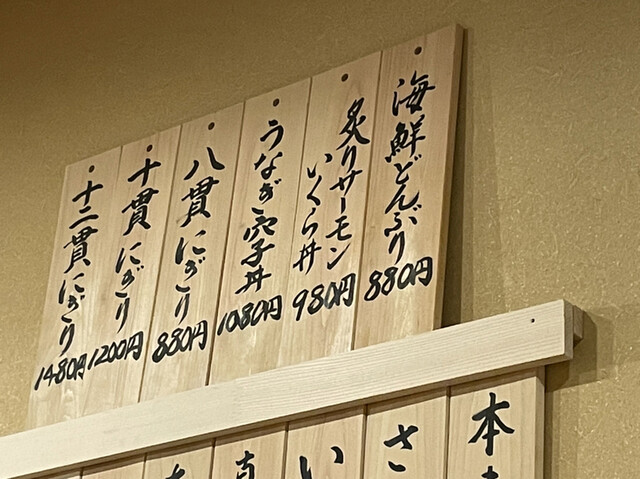 海鮮どんぶり
880円
炙りサーモン
いくら丼
980円
うなぎ穴子丼
1080円
八貫にぎり
880円
十貫にぎり
1200円
十二貫にぎり
1480円
本
さ
い